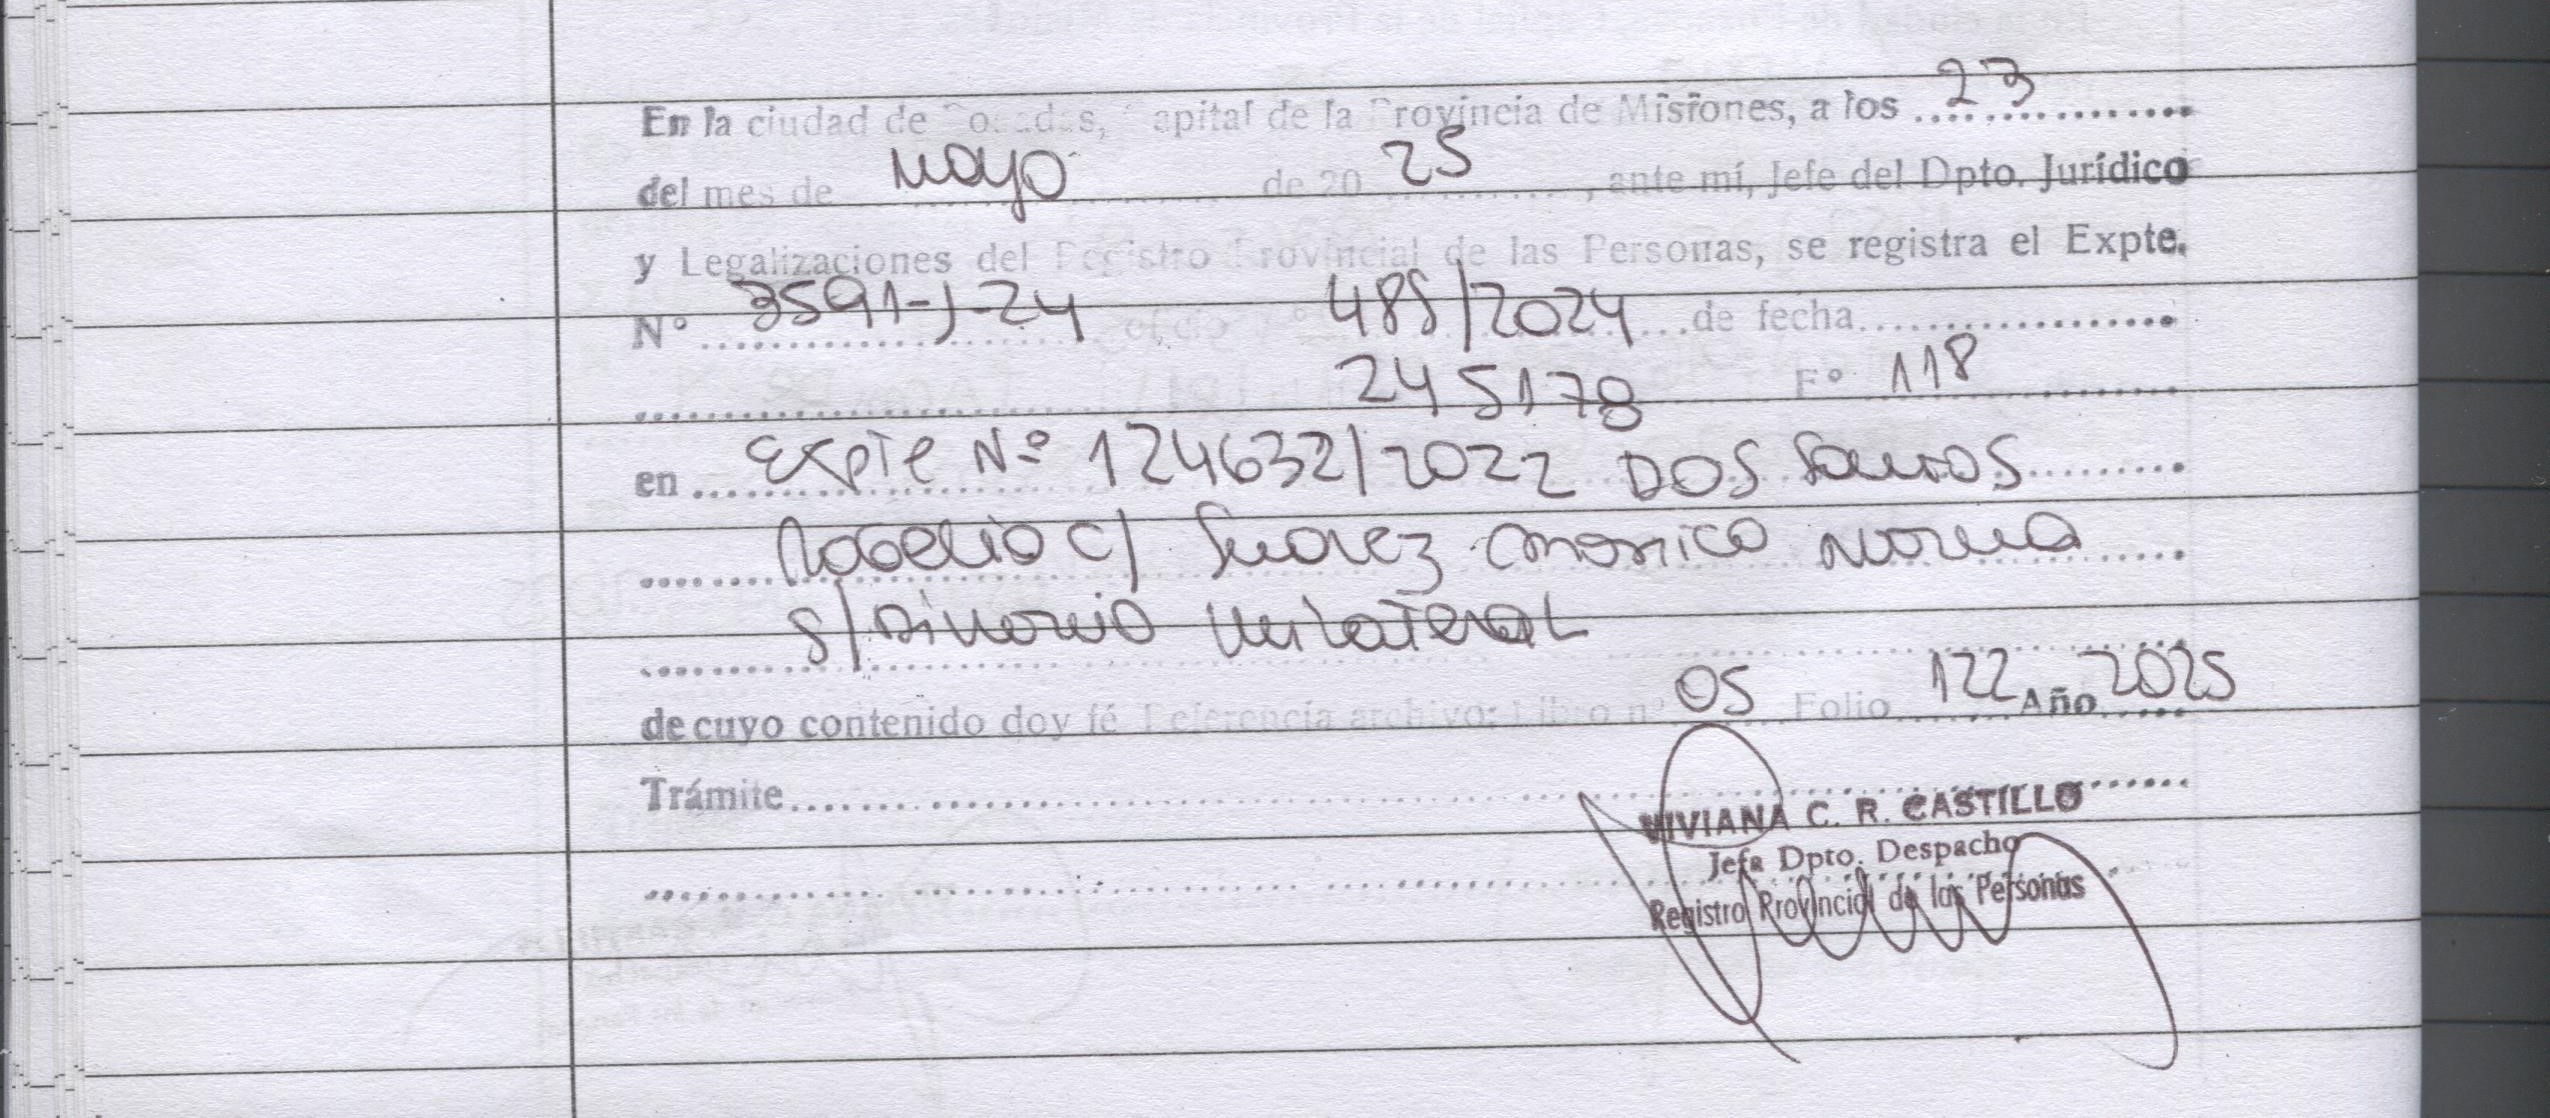 En la ciudad de Posadas, Capital de la Provincia de Misiones, a los 23
del mes de mayo de 20 25, ante mí, Jefe del Dpto. Jurídico
y Legalizaciones del Registro Provincial de las Personas, se registra el Expte.
Nº 3591-J-24 oficio nº 485/2024 de fecha
245178 Fº 118
en Expte Nº 124632/2022 DOS Santos
Rogelio c/ Suarez Norma
s/Divorcio Unilateral
de cuyo contenido doy fé Referencia archivo: Libro nº 05 Folio 122 Año 2025
Trámite
VIVIANA C. R. CASTILLO
Jefa Dpto. Despacho
Registro Provincial de las Personas